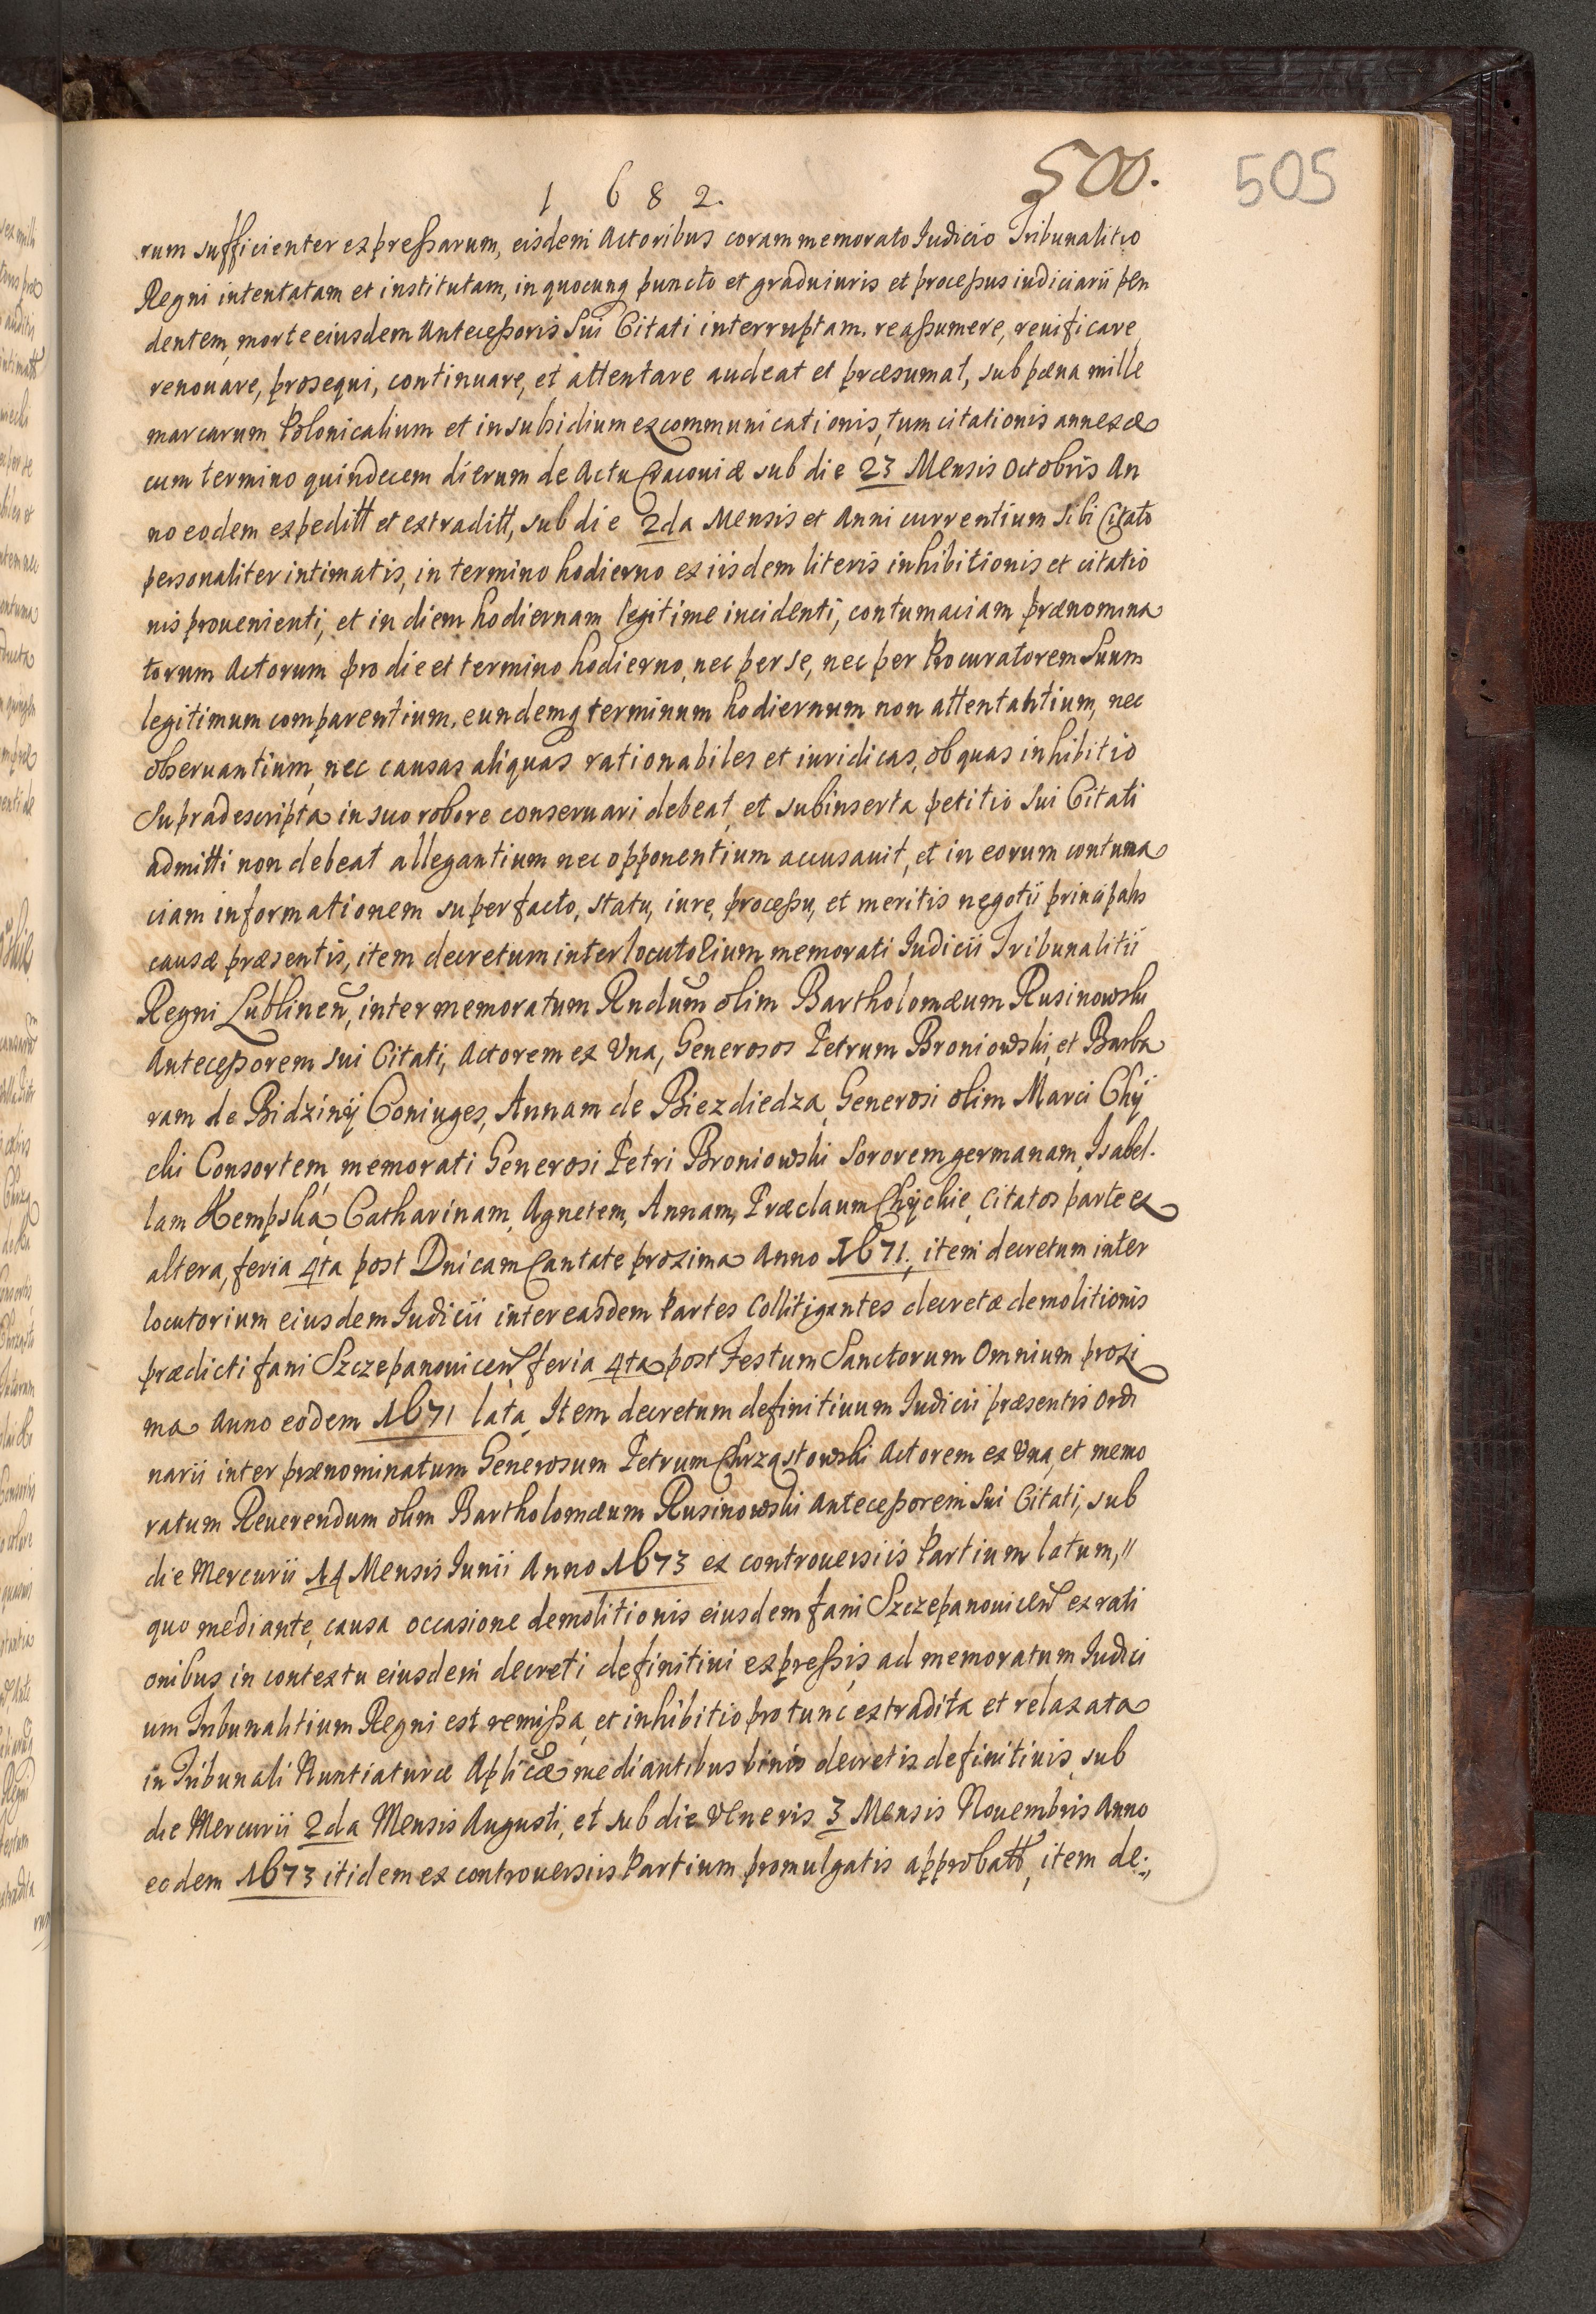 1 6 8 2.
500.
505
rum sufficienter expressarum, eisdem Actoribus coram memorato Iudicio Tribunalitio
Regni intentatam et institutam, in quocunq puncto et gradu iuris et processus iudiciarii pen
dentem, morte eiusdem Antecessoris Sui Citati interruptam, reassumere, reuificare,
renouare, prosequi, continuare, et attentare audeat et præsumat, sub pæna mille
marcarum Polonicalium et in subsidium excommunicationis, tum citationis annexæ
cum termino quindecem dierum de Actu Cracouiæ sub die 23 Mensis Octobris An
no eodem expeditt et extraditt, sub die 2da Mensis et Anni currentium Sibi Citato
personaliter intimatis, in termino hodierno ex iisdem literis inhibitionis et citatio
nis prouenienti, et in diem hodiernam legitime incidenti, contumaciam prænomina
torum Actorum pro die et termino hodierno, nec per se, nec per Procuratorem Suum
legitimum comparentium, eundemq terminum hodiernum non attentantium, nec
obseruantium, nec causas aliquas rationabiles et iuridicas, ob quas inhibitio
Supradescripta in suo robore conseruari debeat, et subinserta petitio Sui Citati
admitti non debeat allegantium nec opponentium accusauit, et in eorum contuma
ciam informationem super facto, statu, iure, processu, et meritis negotii principalis
causæ præsentis, item decretum interlocutorium memorati Iudicii Tribunalitii
Regni Lublineñ, inter memoratum Rndum olim Bartholomæum Rusinowski
Antecessorem sui Citati, Actorem ex Vna, Generosos Petrum Broniowski, et Barba
ram de Bidzinÿ Coniuges, Annam de Biezdiedza, Generosi olim Marci Chÿ
cki Consortem, memorati Generosi Petri Broniowski Sororem germanam, Isabel.
lam Kempská, Catharinam, Agnetem, Annam, Præclaum Chÿckie, Citatos parte ex
altera, feria 4ta post Dnicam Cantate proxima Anno 1671., item decretum inter
locutorium eiusdem Iudicii inter easdem Partes Collitigantes decretæ demolitionis
prædicti fani Szczepanouiceñ feria 4ta post Festum Sanctorum Omnium proxi
ma Anno eodem 1671 lata, Item decretum definitiuum Iudicii præsentis Ordi
narii inter prænominatum Generosum Petrum Chrząstowski Actorem ex Vna, et memo
ratum Reuerendum olim Bartholomæum Rusinowski Antecessorem Sui Citati, sub
die Mercurii 14 Mensis Iunii Anno 1673 ex controuersiis Partium latum,"
quo mediante, causa occasione demolitionis eiusdem fani Szczepanouiceñ ex rati
onibus, in contextu eiusdem decreti definitiui expressis, ad memoratum Iudici
um Tribunalitium Regni est remissa, et inhibitio pro tunc extradita et relaxata
in Tribunali Nuntiaturæ Aplicæ mediantibus binis decretis definitiuis, sub
die Mercurii 2da Mensis Augusti, et sub die Veneris 3 Mensis Nouembris Anno
eodem 1673 itidem ex controuersiis Partium promulgatis approbatt, item de:,,